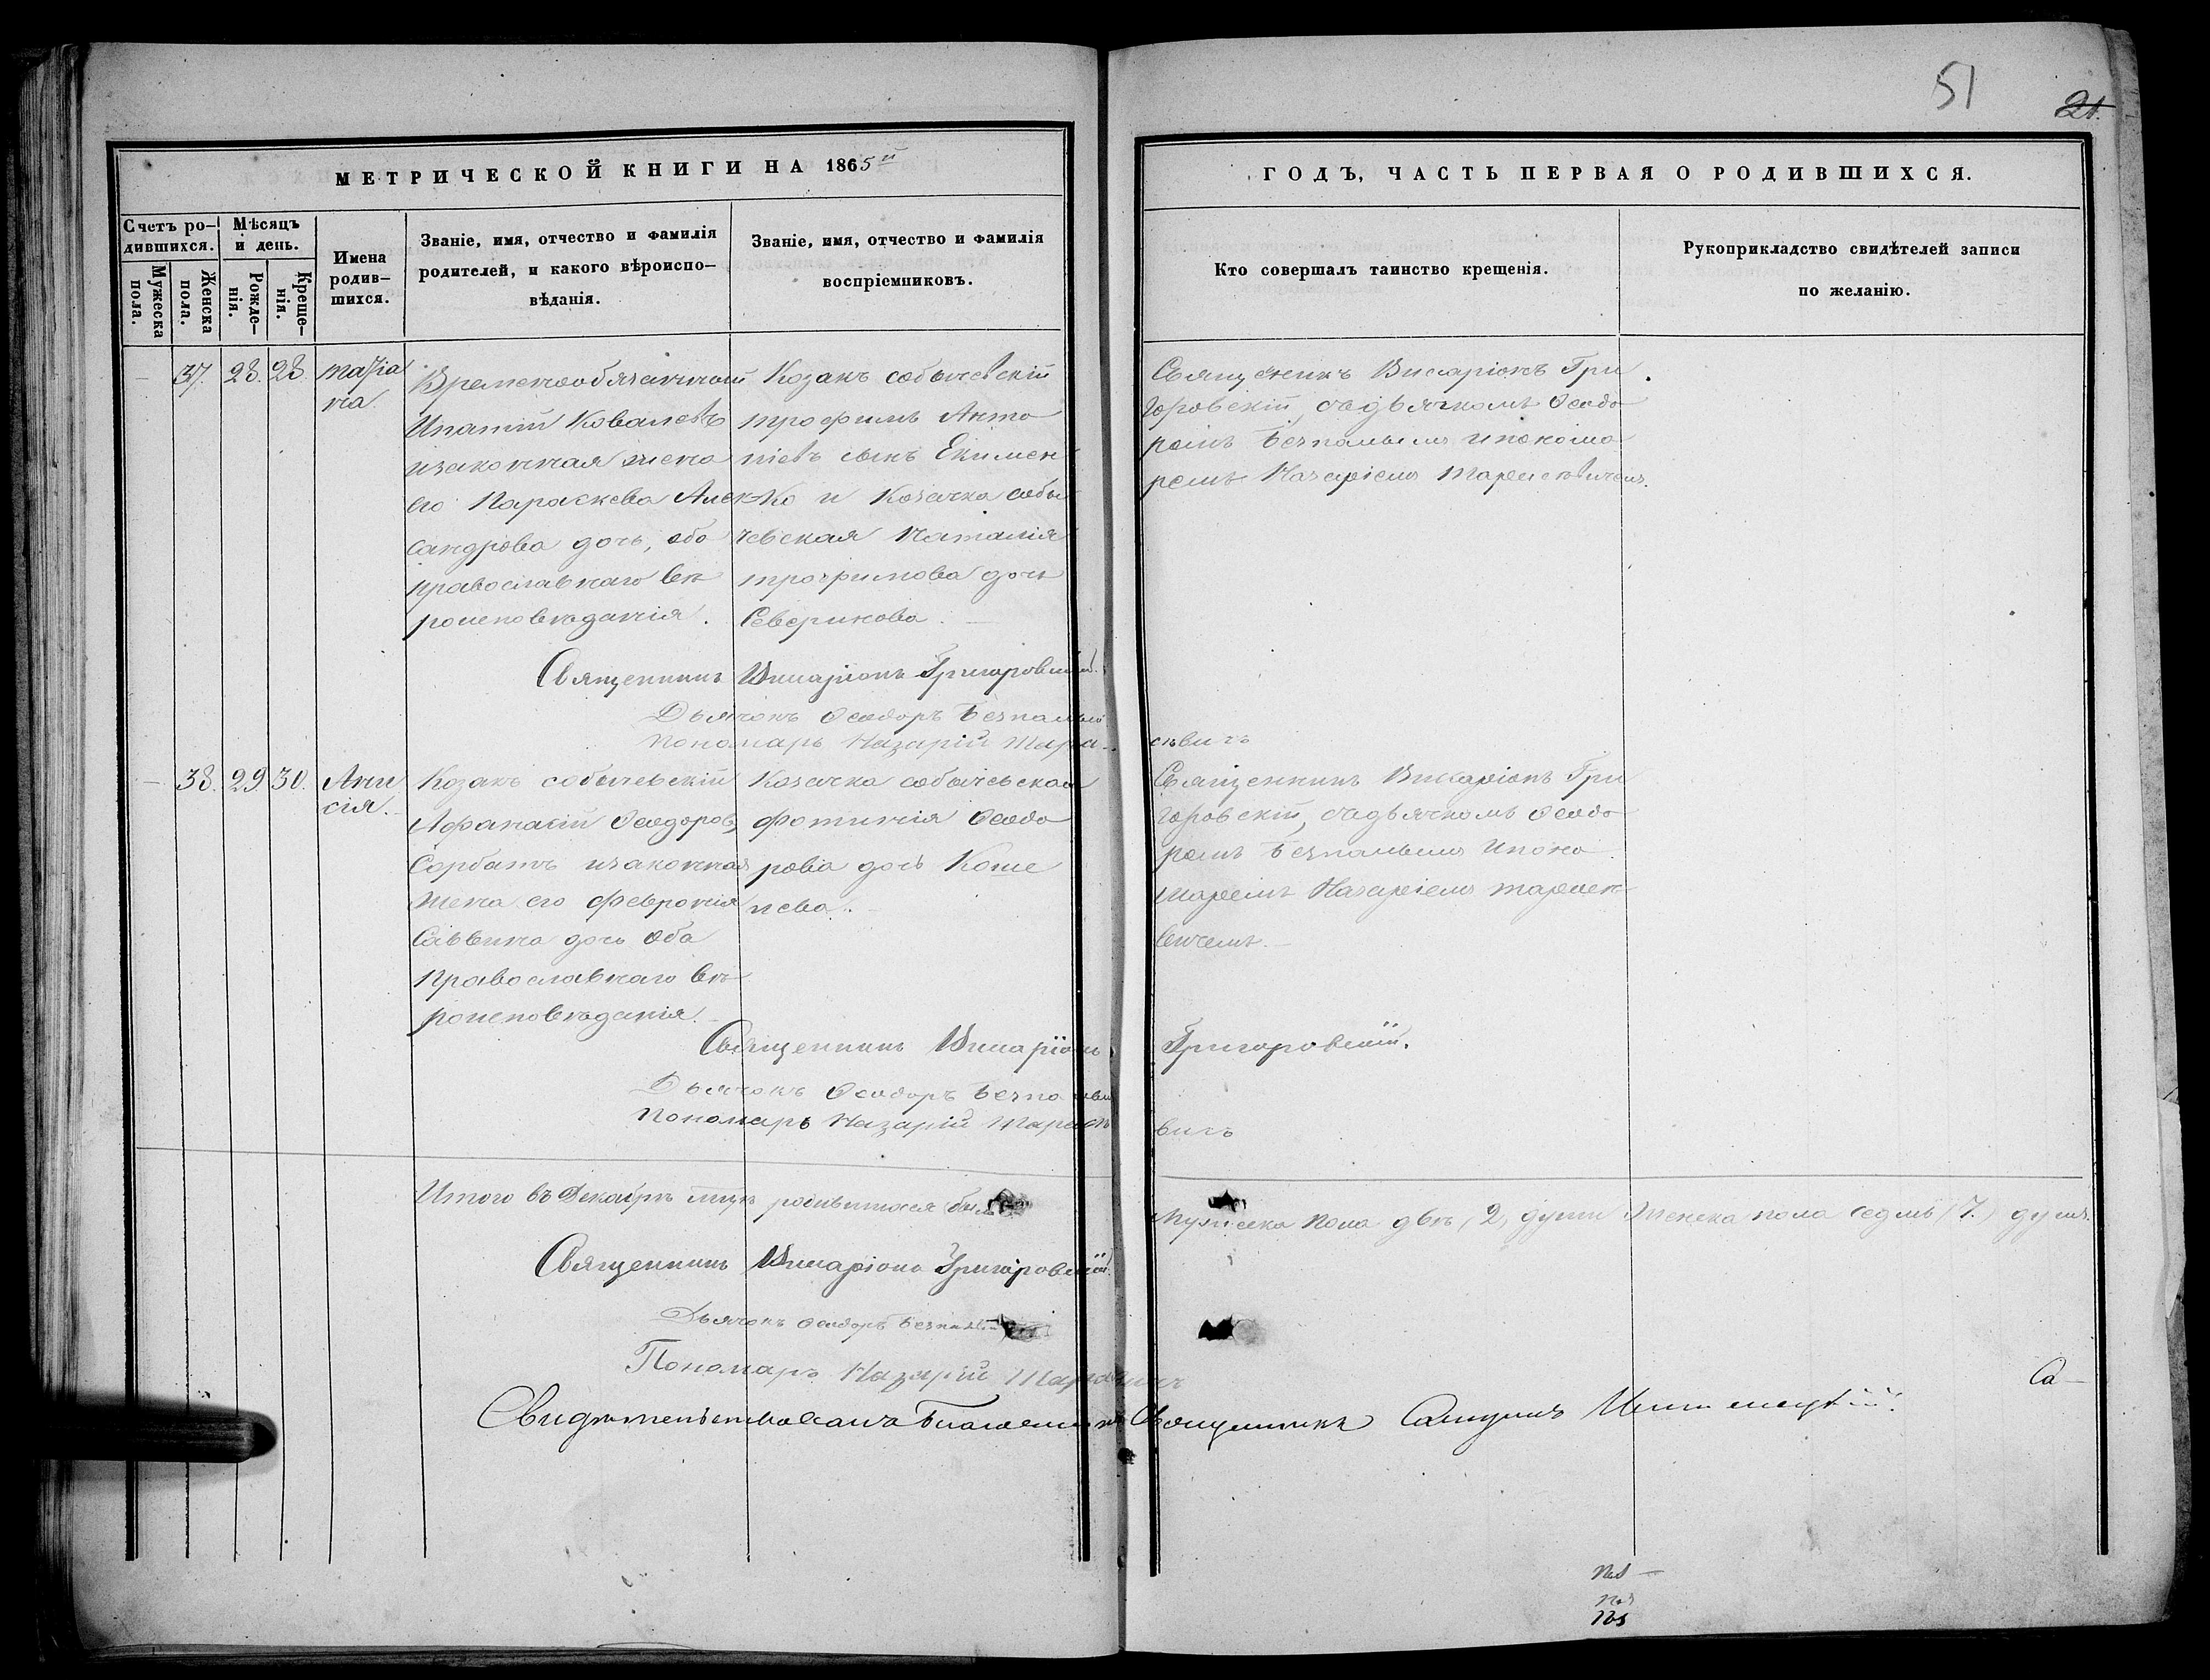 51
21.
МЕТРИЧЕСКОЙ КНИГИ НА 1865й
ГОДЪ, ЧАСТЬ ПЕРВАЯ О РОДИВШИХСЯ.
Счетъ ро-
дившихся.
Мужеска
пола.
Женска
пола.
Мѣсяцъ
и день.
Рожде-
нія.
Креще-
нія.
Имена
родив-
шихся.
Званіе, имя, отчество и фамилія
родителей, и какого вѣроиспо-
вѣданія.
Званіе, имя, отчество и фамилія
воспріемниковъ.
Кто совершалъ таинство крещенія.
Рукоприкладство свидѣтелей записи
по желанію.
37. 28. 28.
Временнообязанный
Ипатій Ковалевъ
изаконная жена
его Параскева Алек
сандрова дочь, обо
православнаго вѣ
роисповѣданія.
Козакъ собычевскій
трофимъ Анто
ніевъ сынъ Екимен
ко и Козачка собы
чевская Наталія
трофимова дочь
Северинова.
Священникъ Висаріонъ Гри
горовскій, съдьячкомъ Ѳеодо
ромъ Безпалымъ ипономо
ремъ Назаріемъ Тарасѣвичемъ.
Священникъ Висаріонъ Григоровскій.
Дьячокъ Ѳеодоръ Безпалый
Пономарь Назарій Тара-
сѣвичъ
38. 29 30. Ани
сія.
Козакъ собычевскій
Афанасій Ѳеодоров,
Сорбатъ изаконная
жена его Феврония
Саввина дочь оба
Православнаго вѣ
роисповѣданія.
Козачка собычевская
Фотинія Ѳеодо
рова дочь Коше
лева.
Священникъ Висаріонъ Гри
горовскій, съдьячкомъ Ѳеодо
ромъ Безпалымъ ипоно
маремъ Назаріемъ тарасѣ
вичемъ.
Священникъ Висаріонъ Григоровскій.
Дьячокъ Ѳеодоръ Безпалый
Пономарь Назарій Тарасѣ
вичъ
Итого въ Декабрѣ мцѣ родившихся было мужеска пола двѣ (2) души Женска пола седмь (7.) душъ.
Священникъ Висаріонъ Григоровскій.
Дьячокъ Ѳеодоръ
Пономарь Назарій
Са-
Свидѣтельствовалъ Благочинный Священникъ